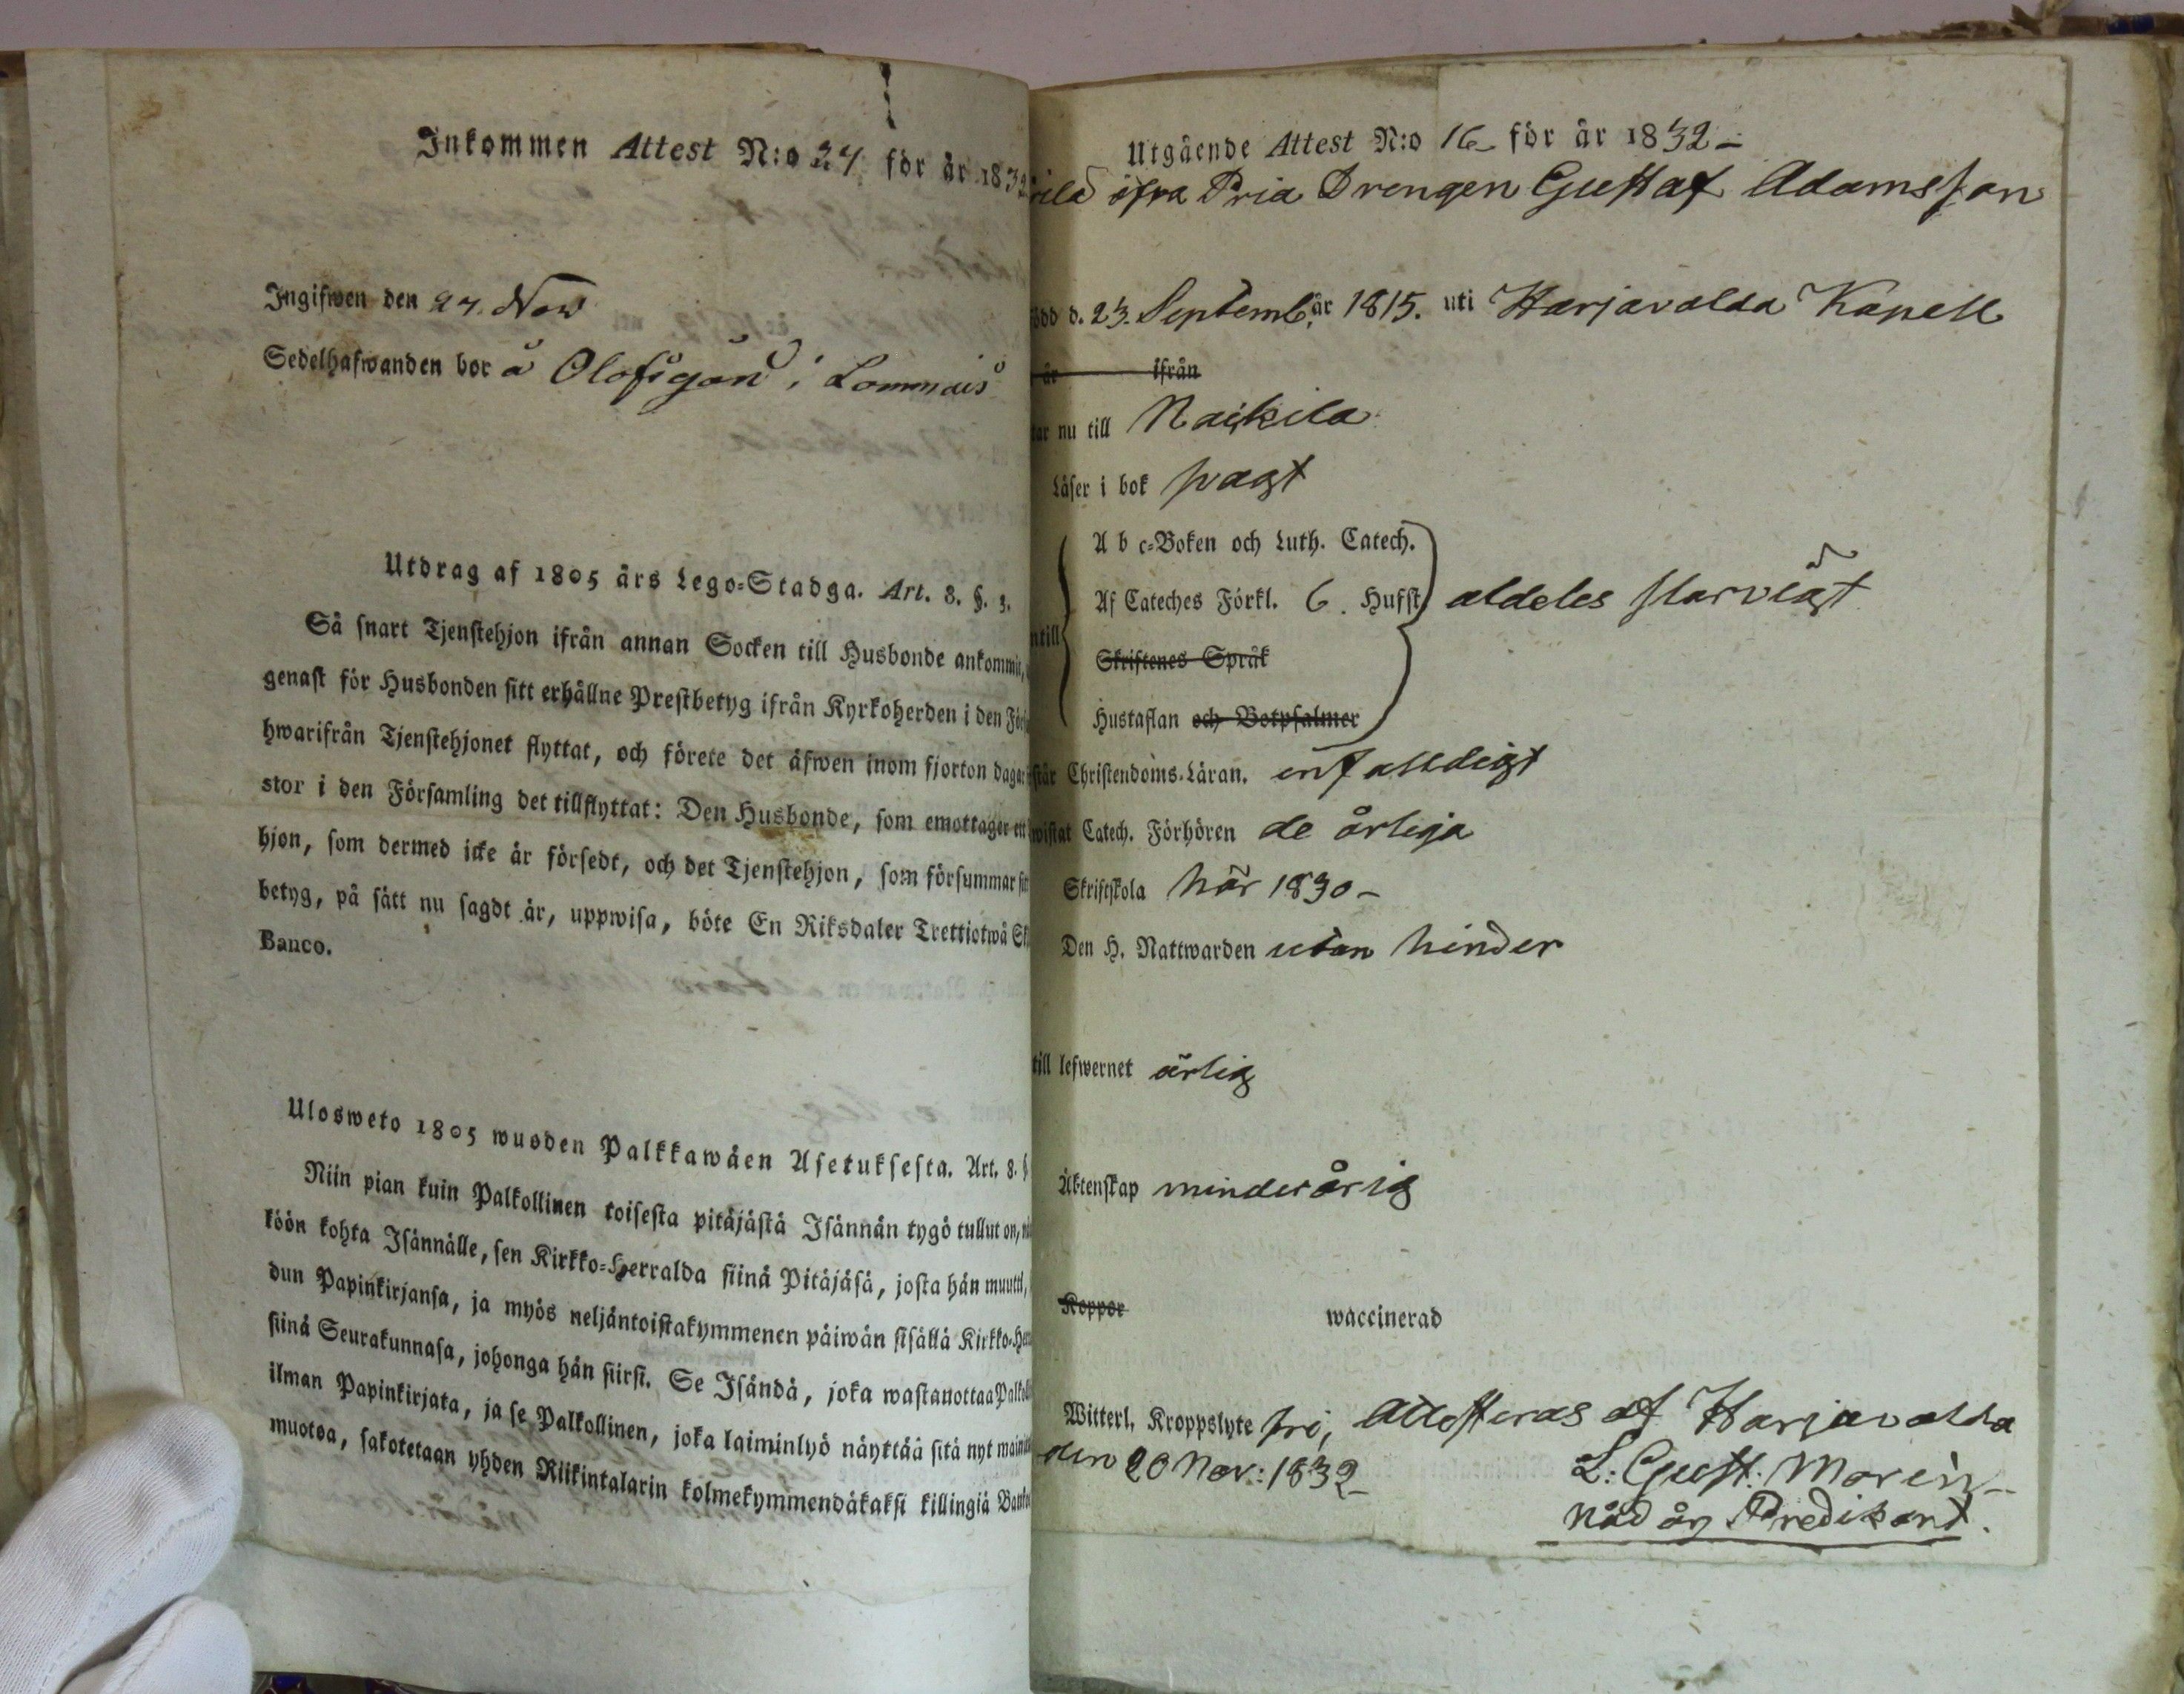 Inkommen Attest N:o 27 för år 1832
Ingifwen den 27. Nov
Sedelhafwanden bor å Olofsgård i Lommais
Utdrag af 1805 års Lego-Stadga. Art. 8. §. 3.
Så snart Tjenstehjon ifrån annan Socken till Husbonde ankommit,
genast för Husbonden sitt erhållne Prestbetyg ifrån Kyrkoherden i den För
hwarifrån Tjenstehjonet flyttat, och förete det äfwen inom fjorton dagar
stor i den Församling det tillflyttat: Den Husbonde, som emottager ett
hjon, som dermed icke är försedt, och det Tjenstehjon, som försummar sitt
betyg, på sätt nu sagdt är, uppwisa, böte En Riksdaler Trettiotwå Sk
Banco.
Ulosweto 1805 wuoden Palkkawäen Asetuksesta. Art. 8. §
Niin pian kuin Palkollinen toisesta pitäjästä Isännän tygö tullut on, nä
köön kohta Isännälle, sen Kirkko-Herralda siinä Pitäjäsä, josta hän muutti,
dun Papinkirjansa, ja myös neljäntoistakymmenen päiwän sisällä Kirkko-Her
siinä Seurakunnasa, johonga hän siirsi. Se Isändä, joka wastanottaa Palkol
ilman Papinkirjata, ja se Palkollinen, joka laiminlyö näyttää sitä nyt mainit
muotoa, sakotetaan yhden Riikintalarin kolmekymmendäkaksi killingiä Banko
Utgående Attest N:o 16 för år 1832
rila ifra Pria Drengen Gustaf Adamsson
ödd d. 23. Septemb. år 1815. uti Harjavalda Kapell
år ifrån
tar nu till Naikila
Läser i bok svagt
A b c-Boken och Luth. Catech.
Af Cateches Förkl. 6. Hufst. aldeles slarvigt
ntill
Skriftenes Språk
Hustaflan och Botpsalmer
står Christendoms-Läran. enfaldigt
wistat Catech. Förhören de årliga
Skriftskola här 1830
Den H. Nattwarden utan hinder
till lefwernet ärlig
Äktenskap minderårig
Koppor waccinerad
Witterl. Kroppslyte fri, Attesteras af Harjavalda
den 20 Nov: 1832
L: Gust: Morén
Nådår Predikant.